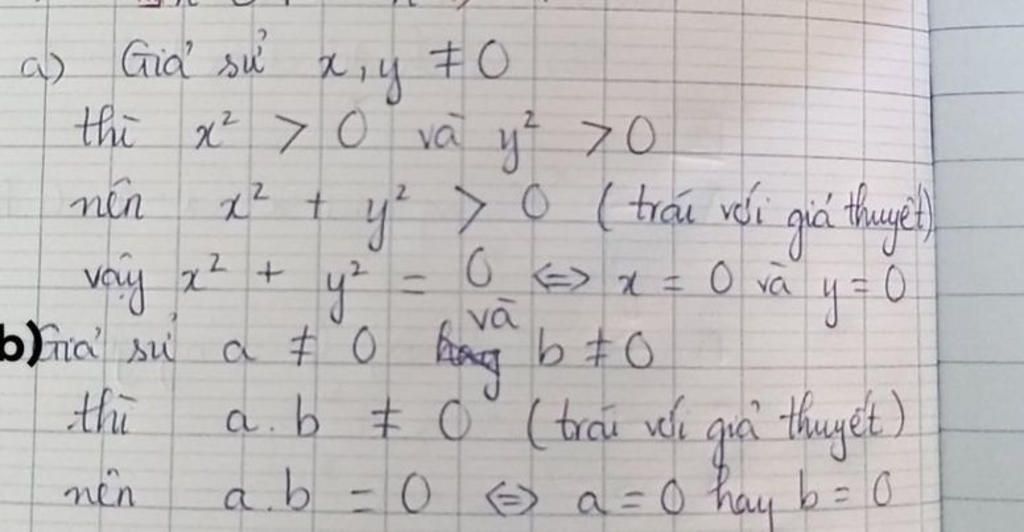 a) Giả sử x, y ≠ 0
thì x² > 0 và y² > 0
nên x² + y² > 0 (trái với giả thuyết)
vậy x² + y² = 0 <=> x = 0 và y = 0
b) Giả sử a ≠ 0 và b ≠ 0
thì a.b ≠ 0 (trái với giả thuyết)
nên a.b = 0 <=> a = 0 hay b = 0